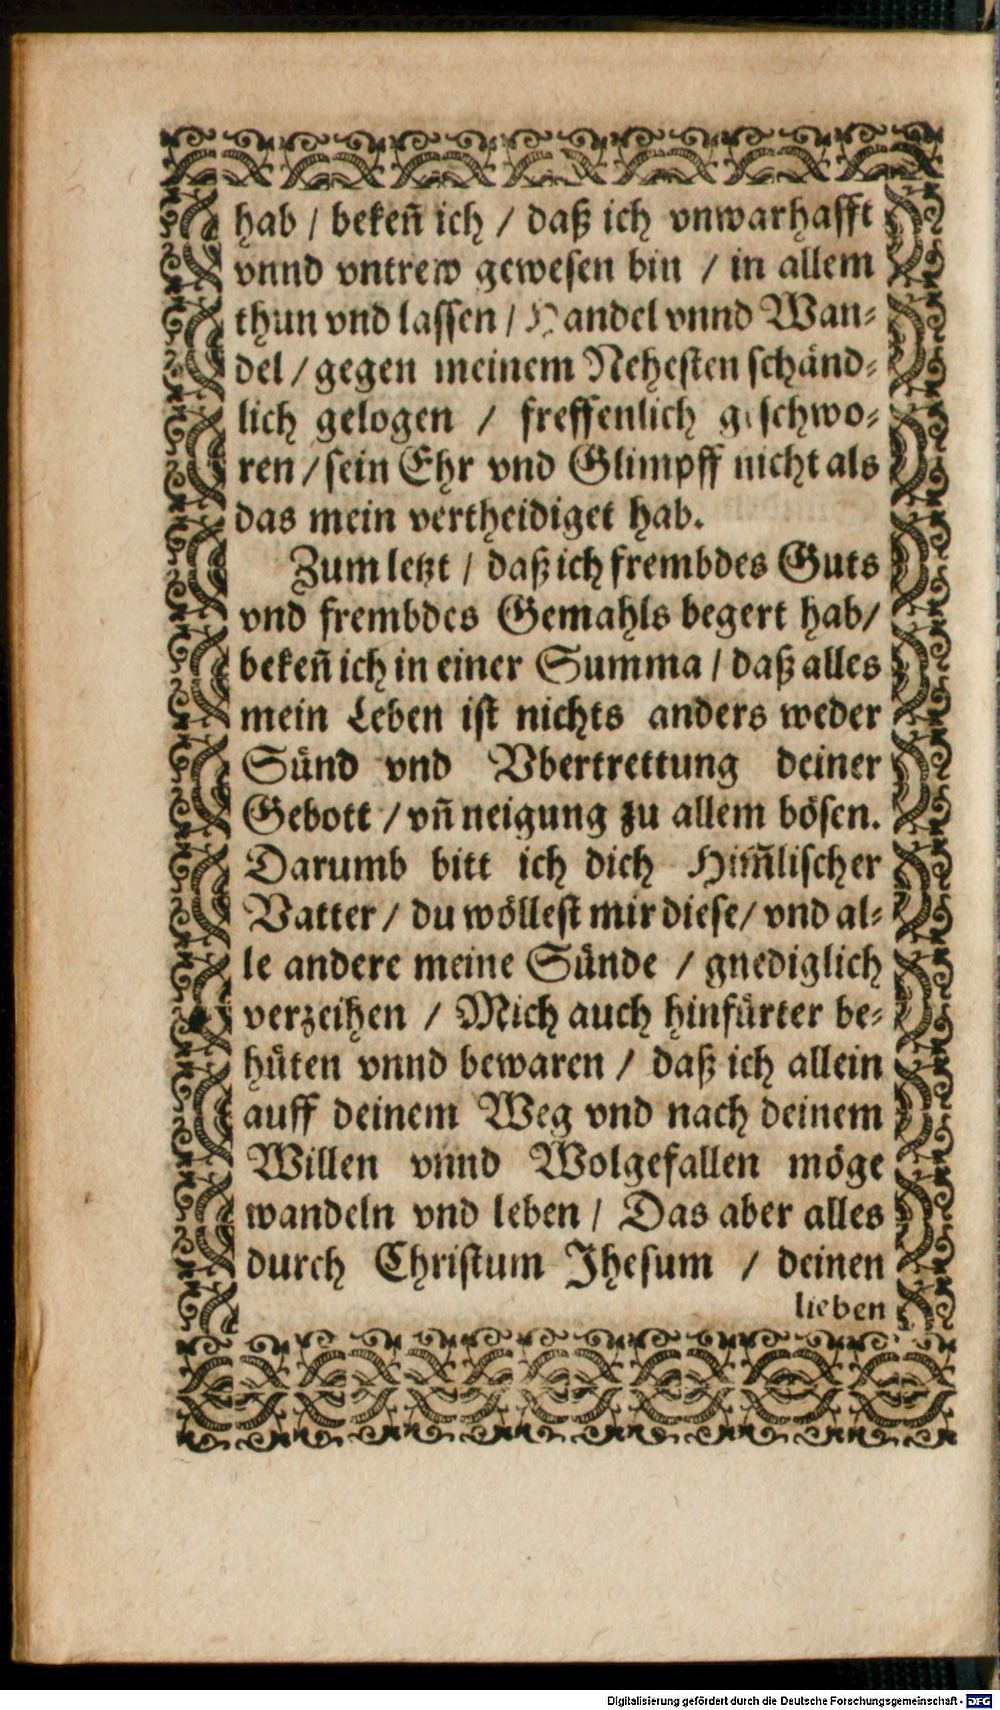 hab / bekeñ ich / daß ich vnwarhafft
vnnd vntrew gewesen bin / in allem
thun vnd lassen / Handel vnnd Wan-
del / gegen meinem Nehesten schänd-
lich gelogen / freffenlich geschwo-
ren / sein Ehr vnd Glimpff nicht als
das mein vertheidiget hab.
Zum letzt / daß ich frembdes Guts
vnd frembdes Gemahls begert hab /
bekeñ ich in einer Summa / daß alles
mein Leben ist nichts anders weder
Sünd vnd Vbertrettung deiner
Gebott / vñ neigung zu allem bösen.
Darumb bitt ich dich Him̃lischer
Vatter / du wöllest mir diese / vnd al-
le andere meine Sünde / gnediglich
verzeihen / Mich auch hinfürter be-
hüten vnnd bewaren / daß ich allein
auff deinem Weg vnd nach deinem
Willen vnnd Wolgefallen möge
wandeln vnd leben / Das aber alles
durch Christum Jhesum / deinen
lieben
Digitalisierung gefördert durch die Deutsche Forschungsgemeinschaft - DFG